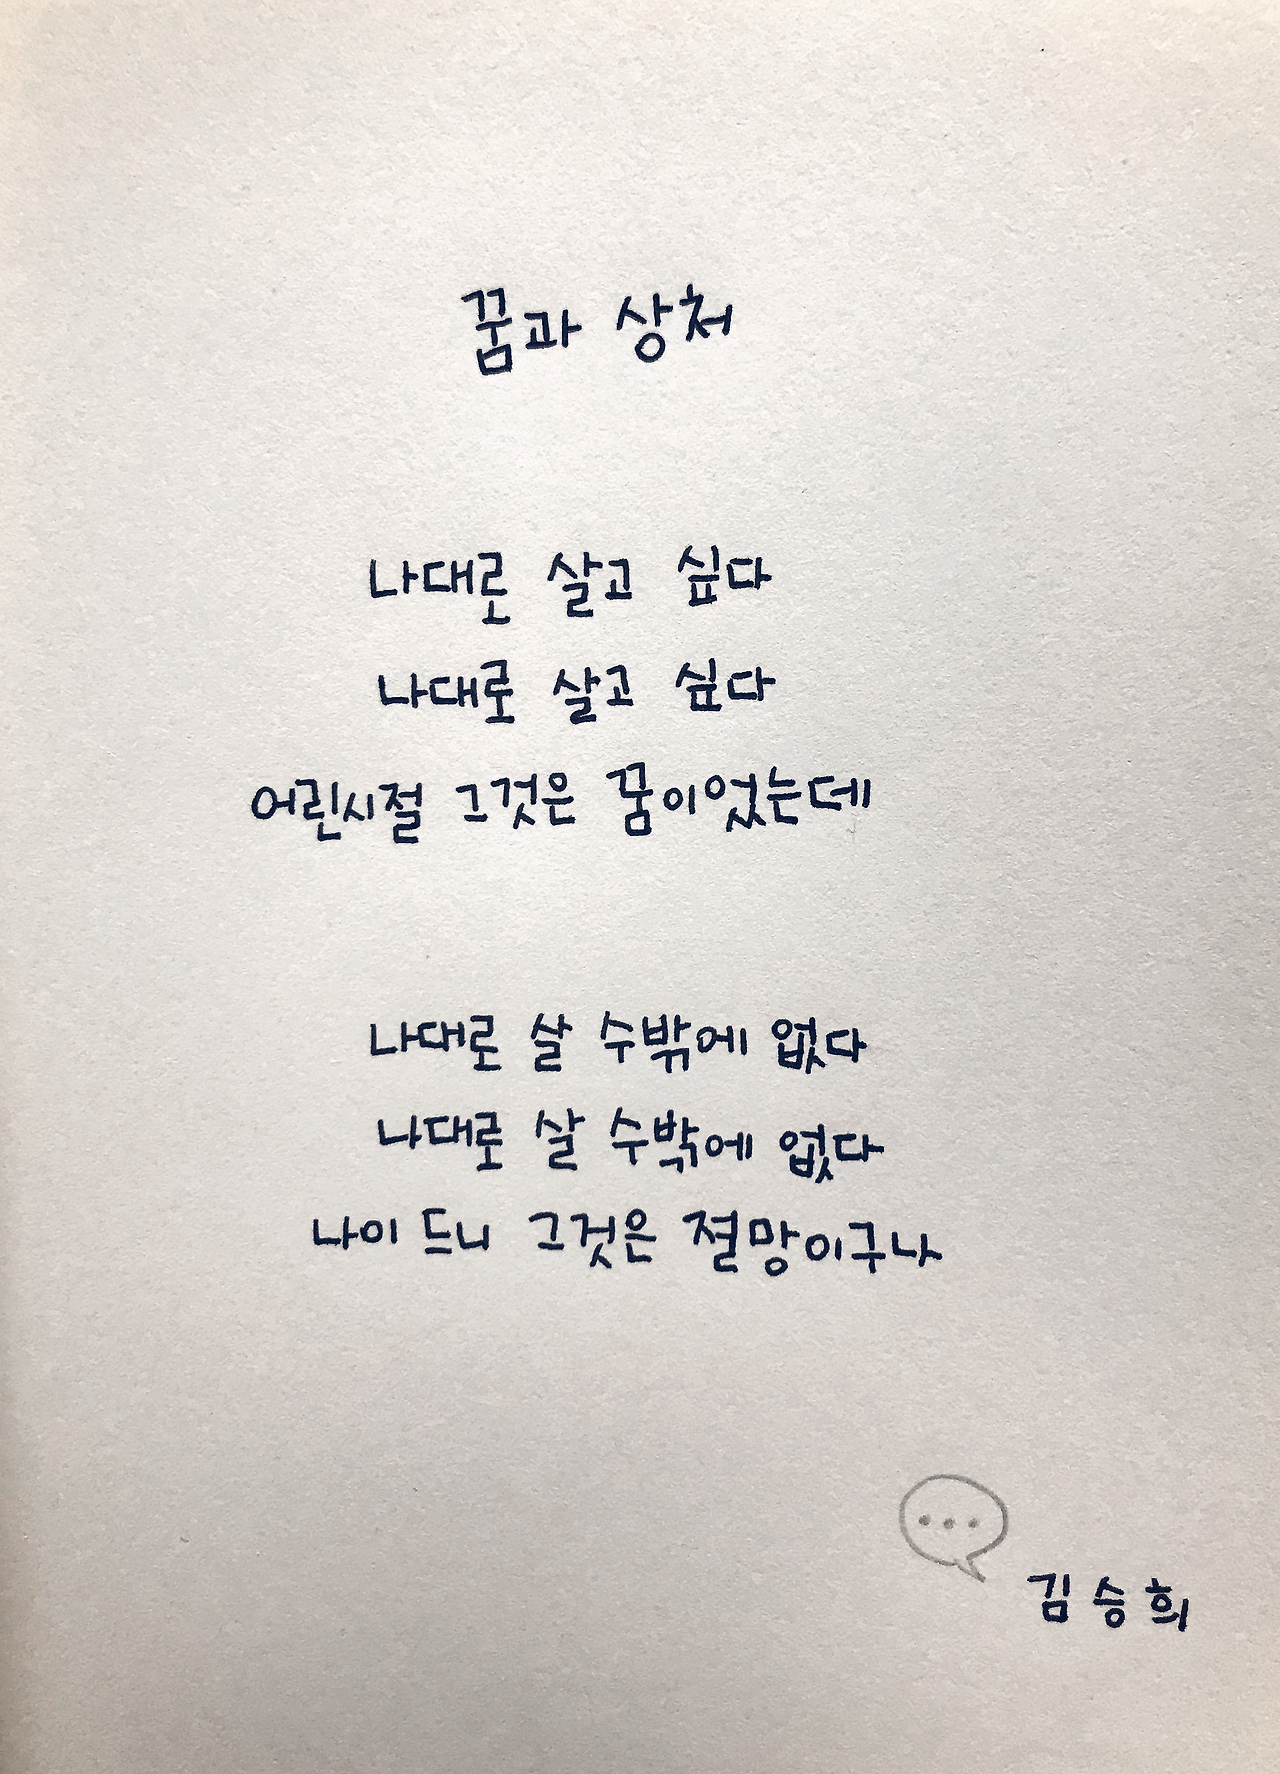 꿈과 상처
나대로 살고 싶다
나대로 살고 싶다
어린시절 그것은 꿈이었는데
나대로 살 수밖에 없다
나대로 살 수밖에 없다
나이 드니 그것은 절망이구나
김승희